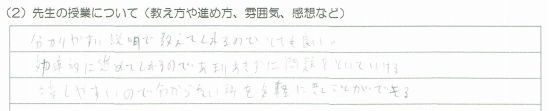 (2) 先生の授業について（教え方や進め方、雰囲気、感想など）
分かりやすい説明で教えてくれるのでとても良い。
効率的に進めてくれるのであまりあきずに問題をといていける
話しやすいので分からない所を気軽にきくことができる